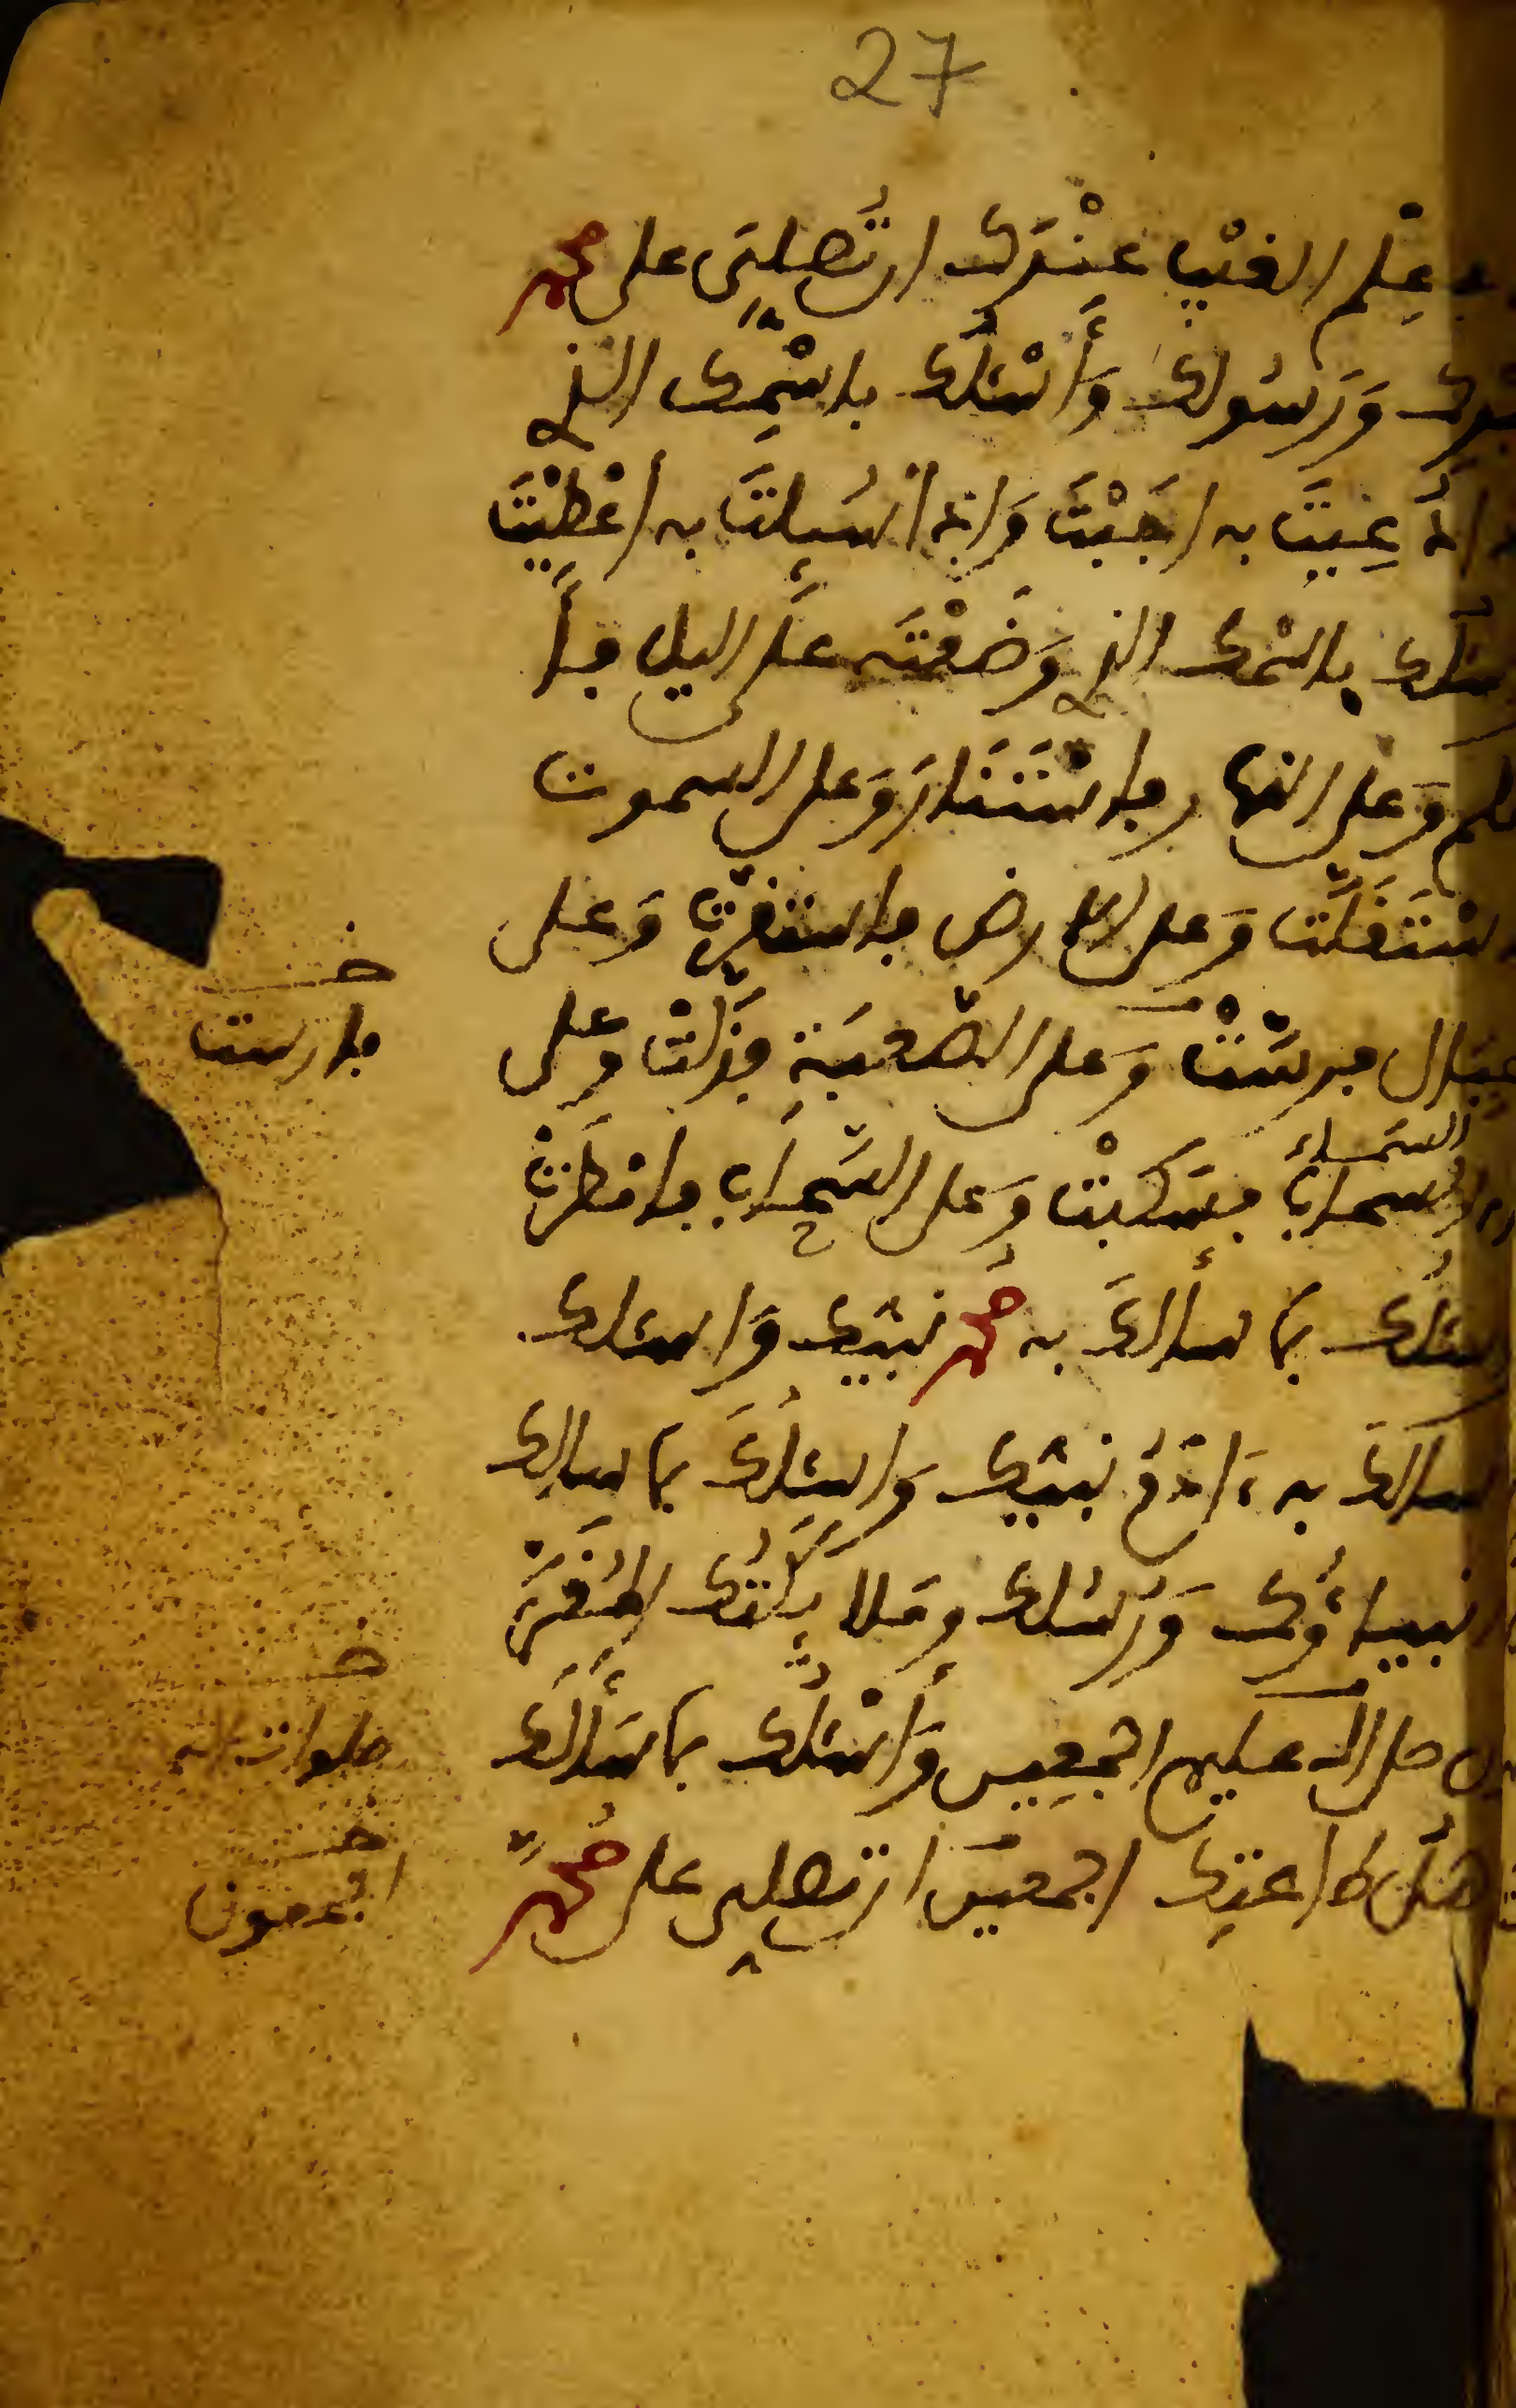 27
علم الغيب عندك ان تصلي على محمد
عبدك ورسولك وأسئلك باسمك الذي
اذا دعيت به اجبت واذا سئلت به اعطيت
وأسئلك باسمك الذي وضعته على اليل فأ
ظلم وعلى النهار فاستنار وعلى السموت
فاستقلت وعلى الارض فاستقرت وعلى
الجبال فرست وعلى الصعبة فذلت وعلى
السماء
ماء السماء فسكبت وعلى السحاب فامطرت
وأسئلك بما سالك به محمد نبيك واسئلك
بما سالك به ءادم نبيك واسئلك بما سالك
به انبياؤك ورسلك وملائكتك المقر
بون صلى الله عليهم اجمعين وأسئلك بما سألك
به اهل طاعتك اجمعين ان تصلي على محمد
خـ
فارست
خـ
صلوات الله
خـ
اجمعون